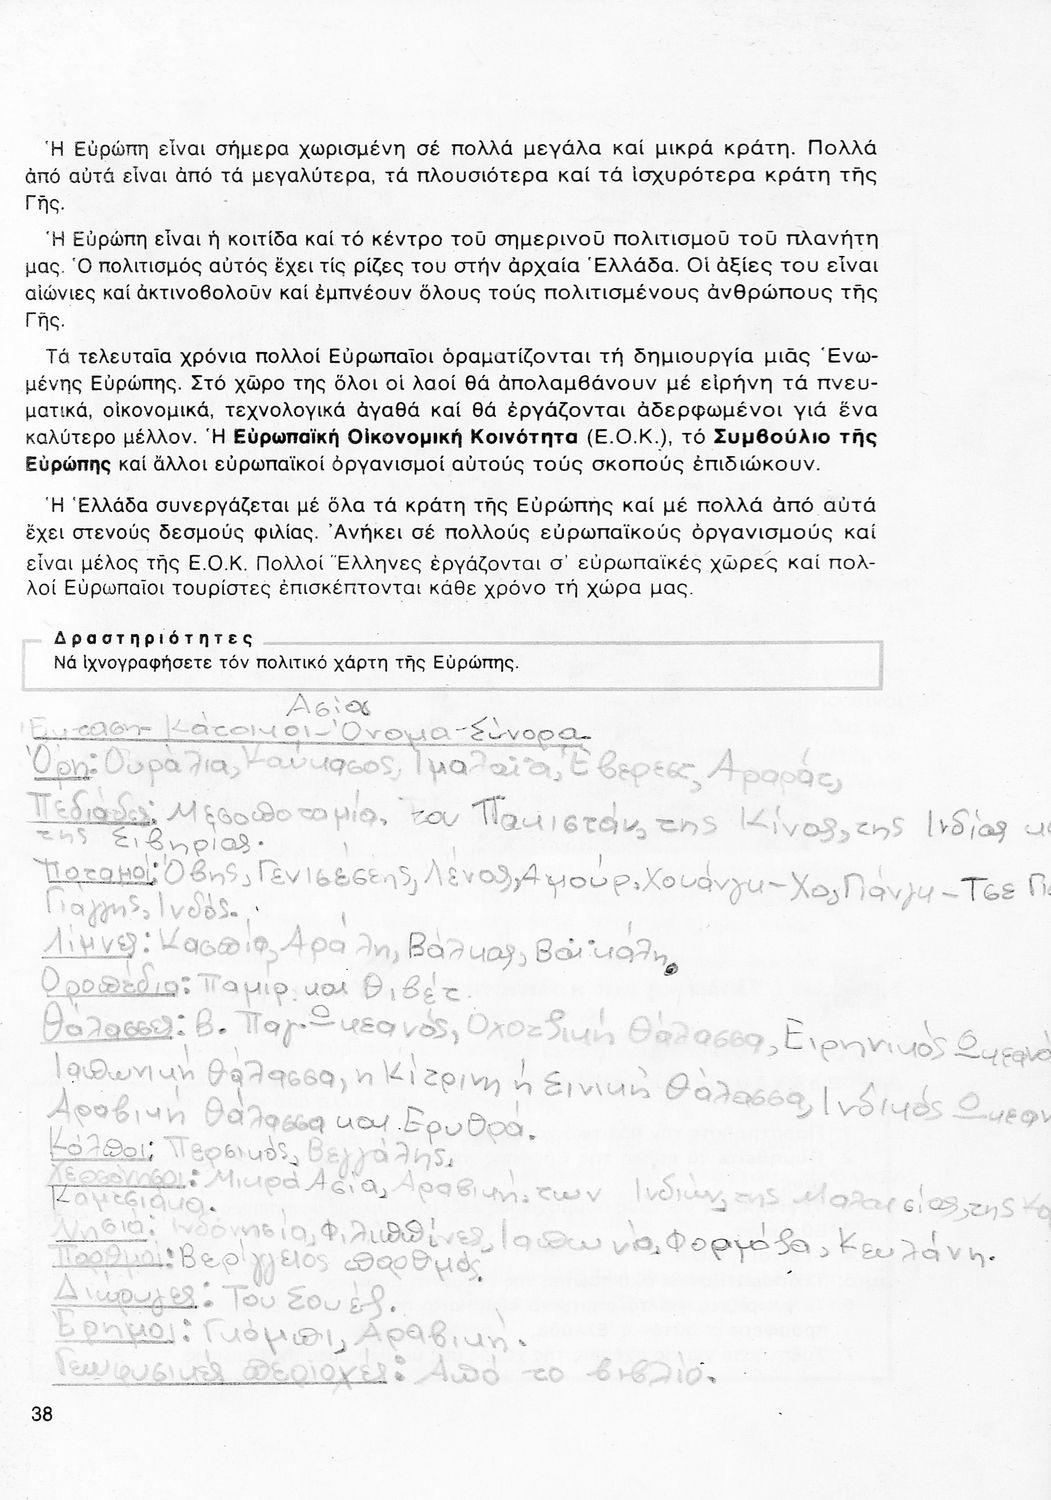 Ἡ Εὐρώπη εἶναι σήμερα χωρισμένη σέ πολλά μεγάλα καί μικρά κράτη. Πολλά
ἀπό αὐτά εἶναι ἀπό τά μεγαλύτερα, τά πλουσιότερα καί τά ἰσχυρότερα κράτη τῆς
Γῆς.
Ἡ Εὐρώπη εἶναι ἡ κοιτίδα καί τό κέντρο τοῦ σημερινοῦ πολιτισμοῦ τοῦ πλανήτη
μας. Ὁ πολιτισμός αὐτός ἔχει τίς ρίζες του στήν ἀρχαία Ἑλλάδα. Οἱ ἀξίες του εἶναι
αἰώνιες καί ἀκτινοβολοῦν καί ἐμπνέουν ὅλους τούς πολιτισμένους ἀνθρώπους τῆς
Γῆς.
Τά τελευταῖα χρόνια πολλοί Εὐρωπαῖοι ὁραματίζονται τή δημιουργία μιᾶς Ἑνω-
μένης Εὐρώπης. Στό χῶρο της ὅλοι οἱ λαοί θά ἀπολαμβάνουν μέ εἰρήνη τά πνευ-
ματικά, οἰκονομικά, τεχνολογικά ἀγαθά καί θά ἐργάζονται ἀδερφωμένοι γιά ἕνα
καλύτερο μέλλον. Ἡ Εὐρωπαϊκή Οἰκονομική Κοινότητα (Ε.Ο.Κ.), τό Συμβούλιο τῆς
Εὐρώπης καί ἄλλοι εὐρωπαϊκοί ὀργανισμοί αὐτούς τούς σκοπούς ἐπιδιώκουν.
Ἡ Ἑλλάδα συνεργάζεται μέ ὅλα τά κράτη τῆς Εὐρώπης καί μέ πολλά ἀπό αὐτά
ἔχει στενούς δεσμούς φιλίας. Ἀνήκει σέ πολλούς εὐρωπαϊκούς ὀργανισμούς καί
εἶναι μέλος τῆς Ε.Ο.Κ. Πολλοί Ἕλληνες ἐργάζονται σ' εὐρωπαϊκές χῶρες καί πολ-
λοί Εὐρωπαῖοι τουρίστες ἐπισκέπτονται κάθε χρόνο τή χώρα μας.
Δραστηριότητες
Νά ἰχνογραφήσετε τόν πολιτικό χάρτη τῆς Εὐρώπης.
Ασία
Έκταση-Κάτοικοι-Όνομα-Σύνορα
Όρη: Ουράλια, Καύκασος, Ιμαλάϊα, Έβερεστ, Αραράτ,
Πεδιάδες: Μεσοποταμία, του Πακιστάν, της Κίνας, της Ινδίας
της Σιβηρίας.
Ποταμοί: Όβης, Γενισέσεης, Λένας, Αμούρ, Χουάνγκ-Χο, Γιάνγκ-Τσε
Γάγγης, Ινδός.
Λίμνες: Κασπία, Αράλη, Βάλκας, Βαϊκάλη.
Οροπέδια: Παμίρ και Θιβέτ.
Θάλασσες: Β. Παγ. Ωκεανός, Οχοτσκική Θάλασσα, Ειρηνικός
Ιαπωνική Θάλασσα, η Κίτρινη ή Σινική Θάλασσα, Ινδικός
Αραβική Θάλασσα και Ερυθρά.
Κόλποι: Περσικός, Βεγγάλης,
Χερσόνησοι: Μικρά Ασία, Αραβική, των Ινδιών, της Μαλαισίας, της
Καμτσιάκα.
Νησιά: Ινδονησία, Φιλιππίνες, Ιαπωνία, Φορμόζα, Κευλάνη.
Πορθμοί: Βερίγγειος πορθμός
Διώρυγες: Του Σουέζ.
Έρημοι: Γκόμπι, Αραβική.
Γεωφυσικές περιοχές: Από το βιβλίο.
38